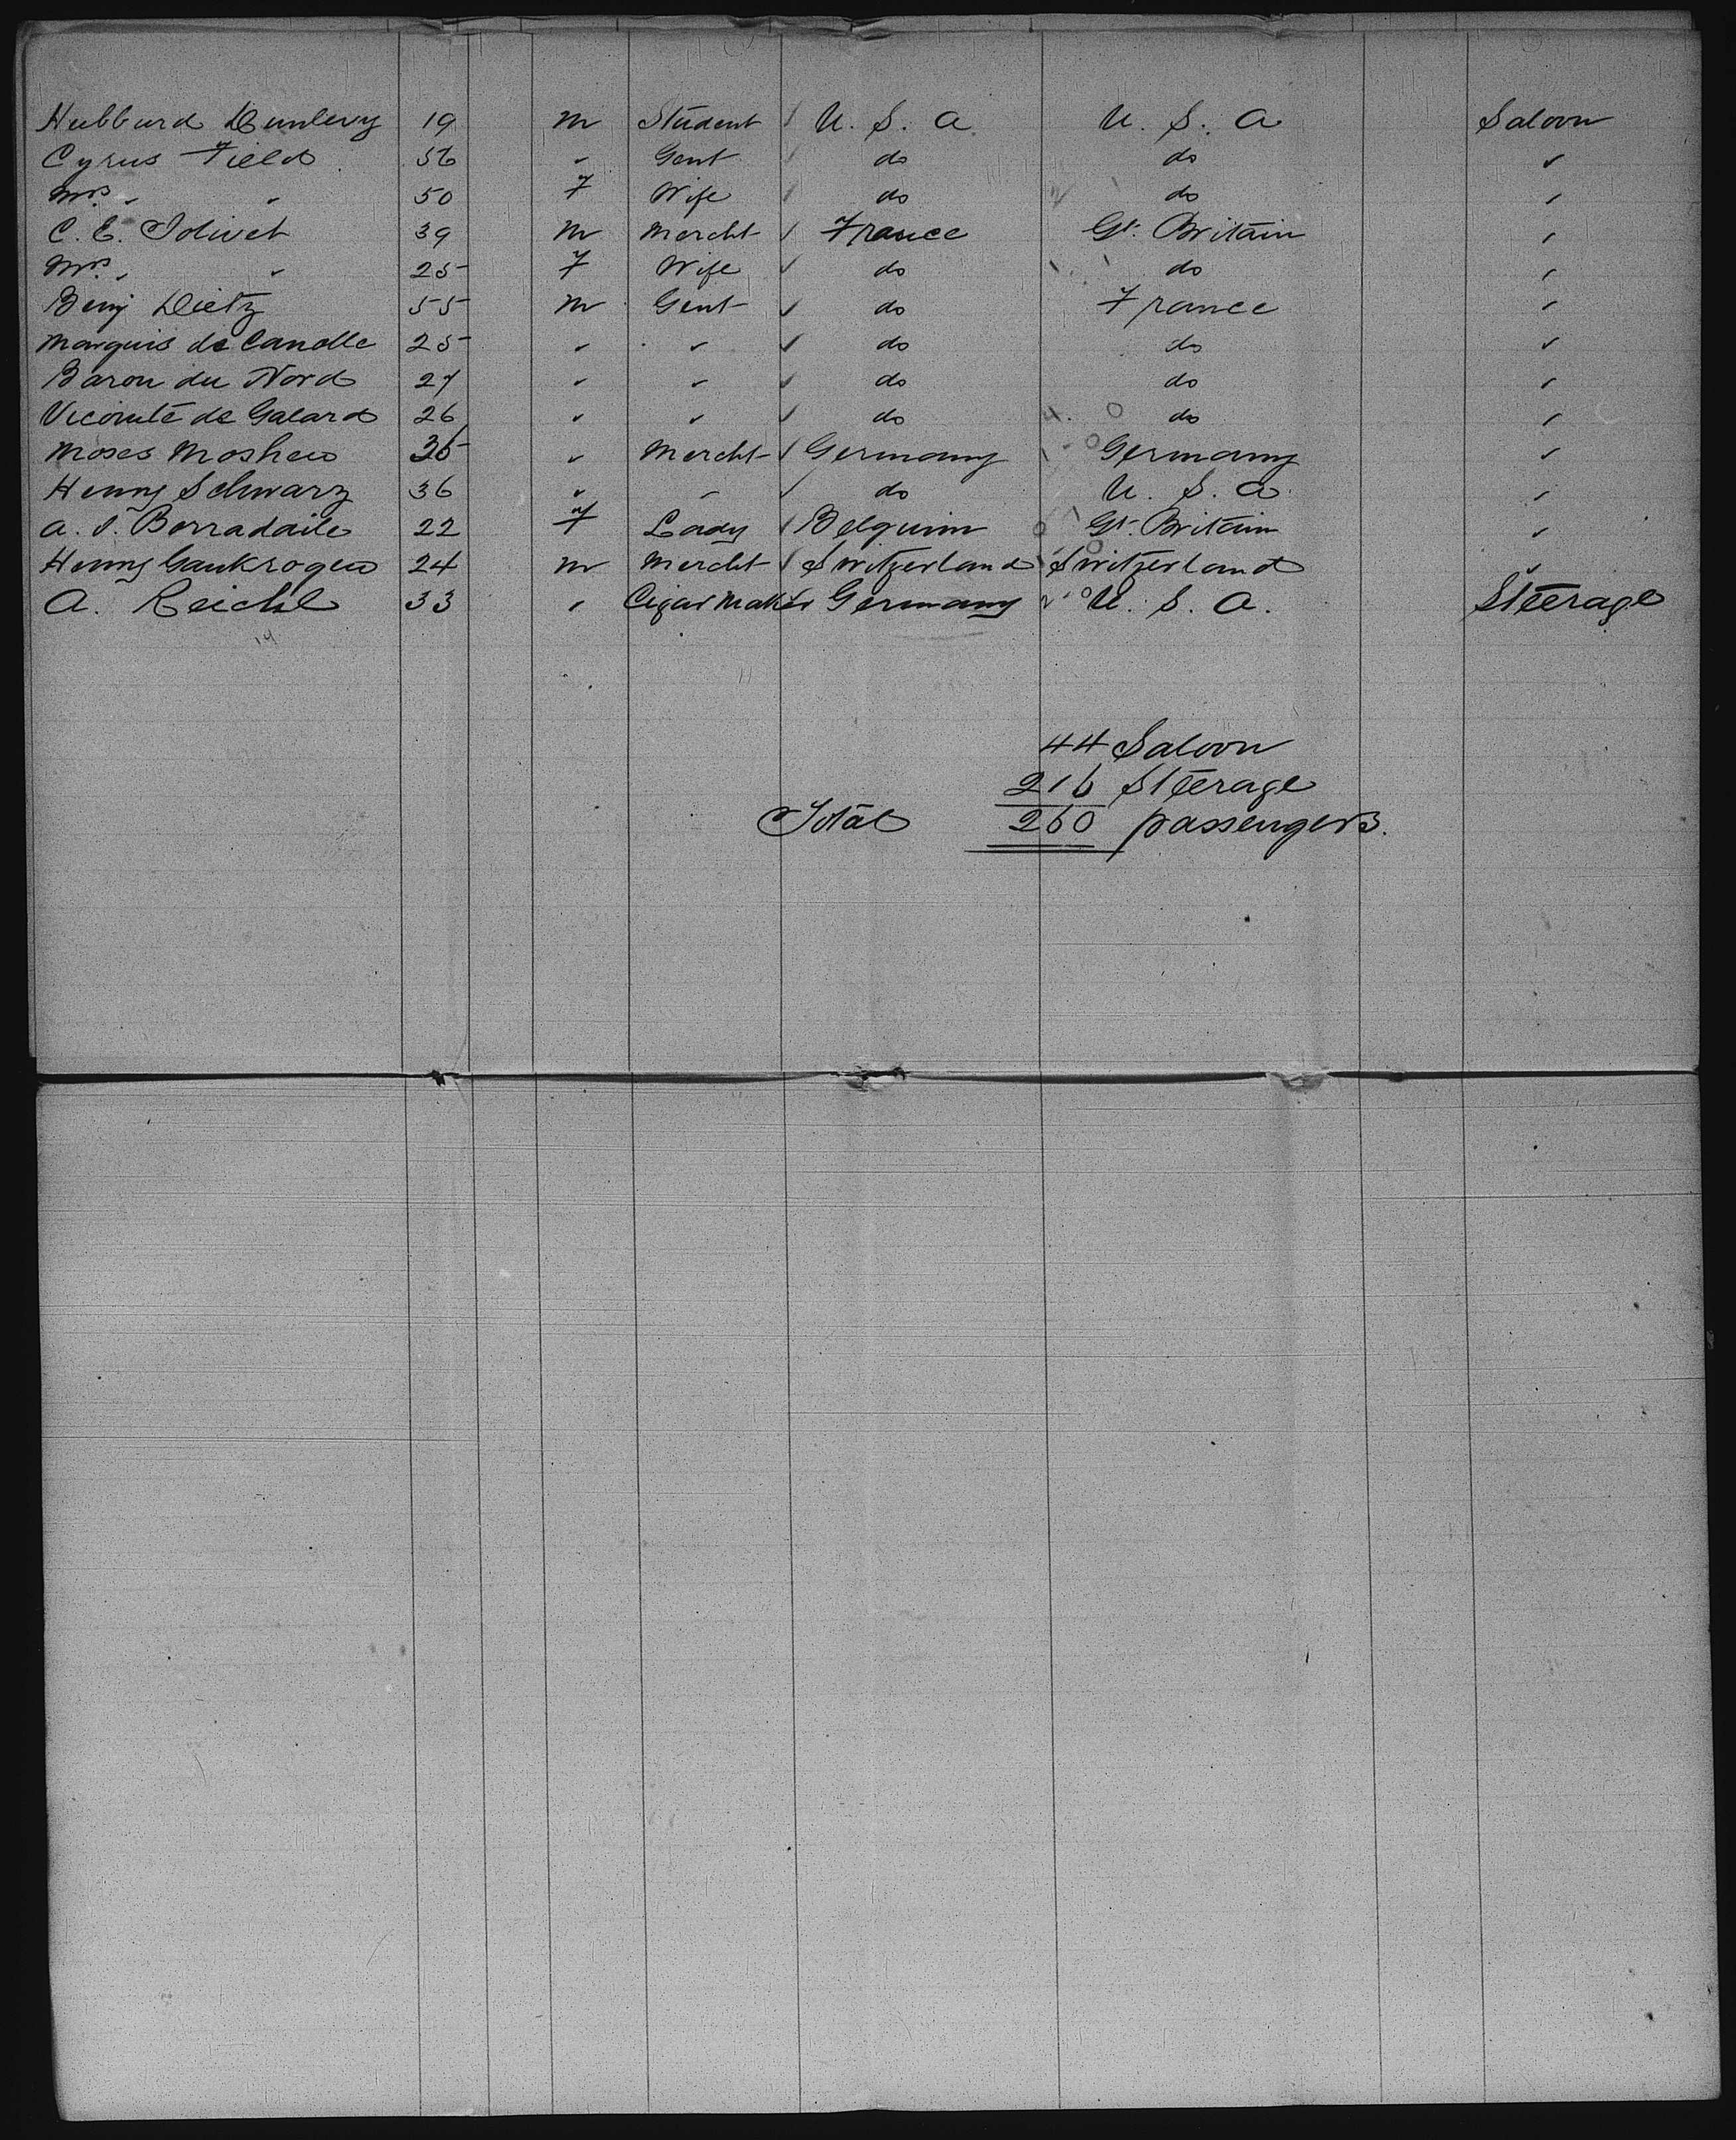 Hubburd Dunlevy 19 m Student U. S. A U. S. A Saloon
Cyrus Field 56 " Gent do do "
Mrs. " " 50 F Wife do do "
C. E. Jolivet 39 m Mercht France Gt. Britain "
Mrs. " " 25 F Wife do do "
Benj Dietz 55 m Gent do France "
Marquis de Candlle 25 " " do do "
Baron du Nord 27 " " do do "
Vicomte de Galard 26 " " do do "
Moses " Mercht Germany Germany "
Henry Schwarz 36 " " do U. S. A. "
A. Borradaile 22 F Lady Belguim Gt. Britain "
Henry Gaukroger 24 m Mercht Switzerland Switzerland "
A. Reichl 33 " Cigar Maker Germany U. S. A. Steerage
44 Saloon
216 Steerage
Total 260 passengers.